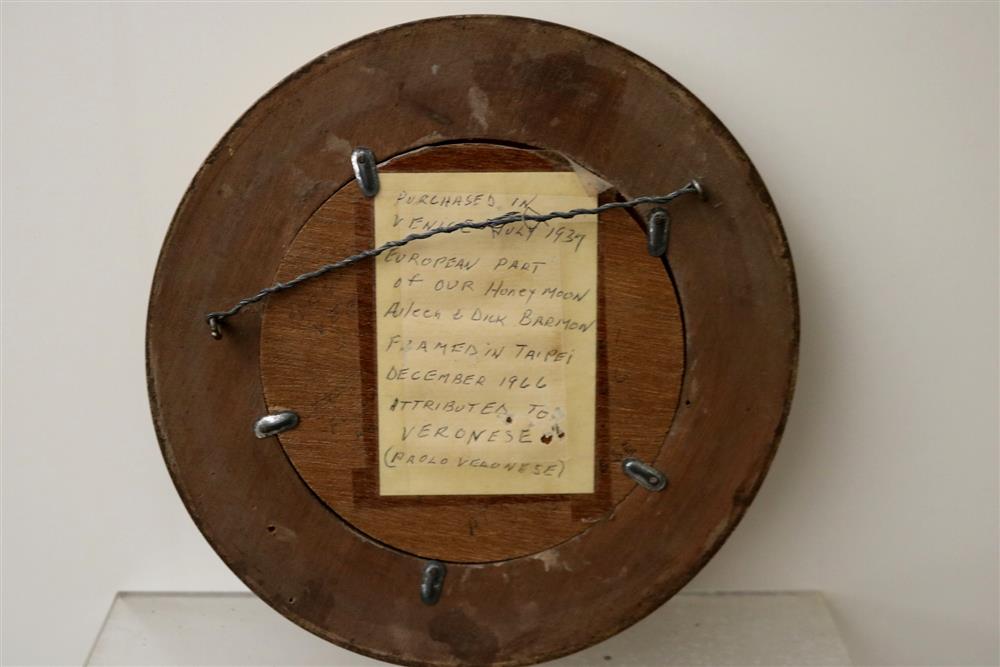 PURCHASED IN
VENICE JULY 1937
EUROPEAN PART
of OUR Honey MOON
& DICK BARMON
FRAMED IN TAIPEI
DECEMBER 1966
ATTRIBUTED TO
VERONESE
(PAOLO VERONESE)